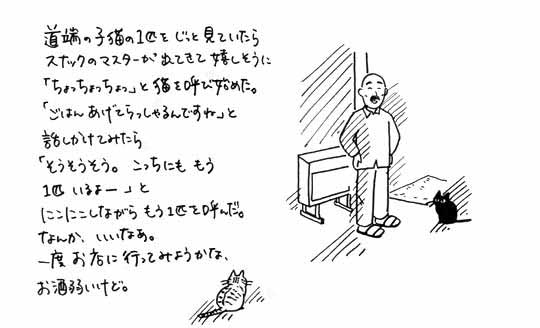 道端の子猫の1匹をじっと見ていたら
スナックのマスターが出てきて嬉しそうに
「ちょっちょっちょっ」と猫を呼び始めた。
「ごはんあげてらっしゃるんですね」と
話しかけてみたら
「そうそうそう。こっちにももう
1匹いるよー」と
にこにこしながらもう1匹を呼んだ。
なんか、いいなあ。
一度お店に行ってみようかな、
お酒弱いけど。